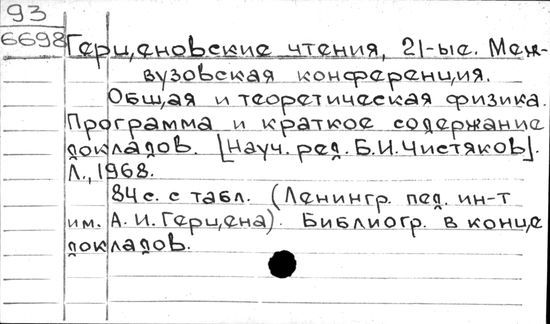 93
6698
Герценовские чтения, 21-ые. Меж-
вузовская конференция.
Общая и теоретическая физика.
Программа и краткое содержание
докладов. [Науч. ред. Б.И.Чистяков].
Л., 1968.
84 с. с табл. (Ленингр. пед. ин-т
им. А. И. Герцена). Библиогр. в конце
докладов.